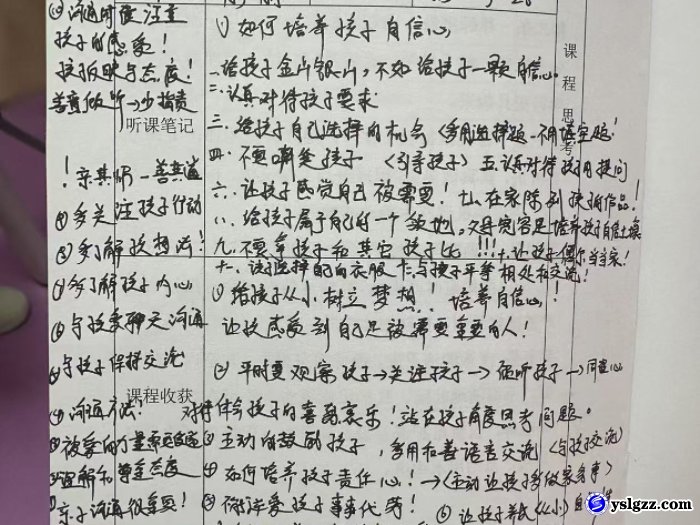 ⑩沟通时要注意
孩子的感受!
孩反映与态度!
听课笔记
!亲其师-善其道
④多关注孩子行动
③多了解孩想法!
多了解孩子内心
与孩多聊天沟通
与孩子保持交流
课程收获
沟通方法!
理解和尊重态度
亲子沟通很重要!
(1)如何培养孩子自信心
一给孩子金山银山,不如给孩子一颗自信心
二:认真对待孩子要求
三.给孩子自己选择的机会(多用选择题-不用填空题!
四.不要嘲笑孩子(引导孩子)五.认真对待孩子用提问
六.让孩子感觉自己被需要!七.在家陈列孩子的作品!
八.给孩子属于自己的一个领地,父母宽容是培养孩子自信土壤
九.不要拿孩子和其它孩子比!!!十.让孩子偶尔当当家!
十一.孩子选择的自衣服 与孩子平等相处和交流!
①给孩子从小树立梦想!培养自信心!
让孩感受到自己是被需要重要的人!
(2)平时要观察孩子→关注孩子→倾听孩子→同理心
对待体会孩子的喜怒哀乐!站在孩子角度思考问题。
③主动的鼓励孩子,多用和善语言交流(与孩子交流)
④如何培养孩子责任心!→(主动让孩子多做家务事)
爱孩子事事代劳!⑥让孩子养成(从小)
课程思考
yslgzz.com